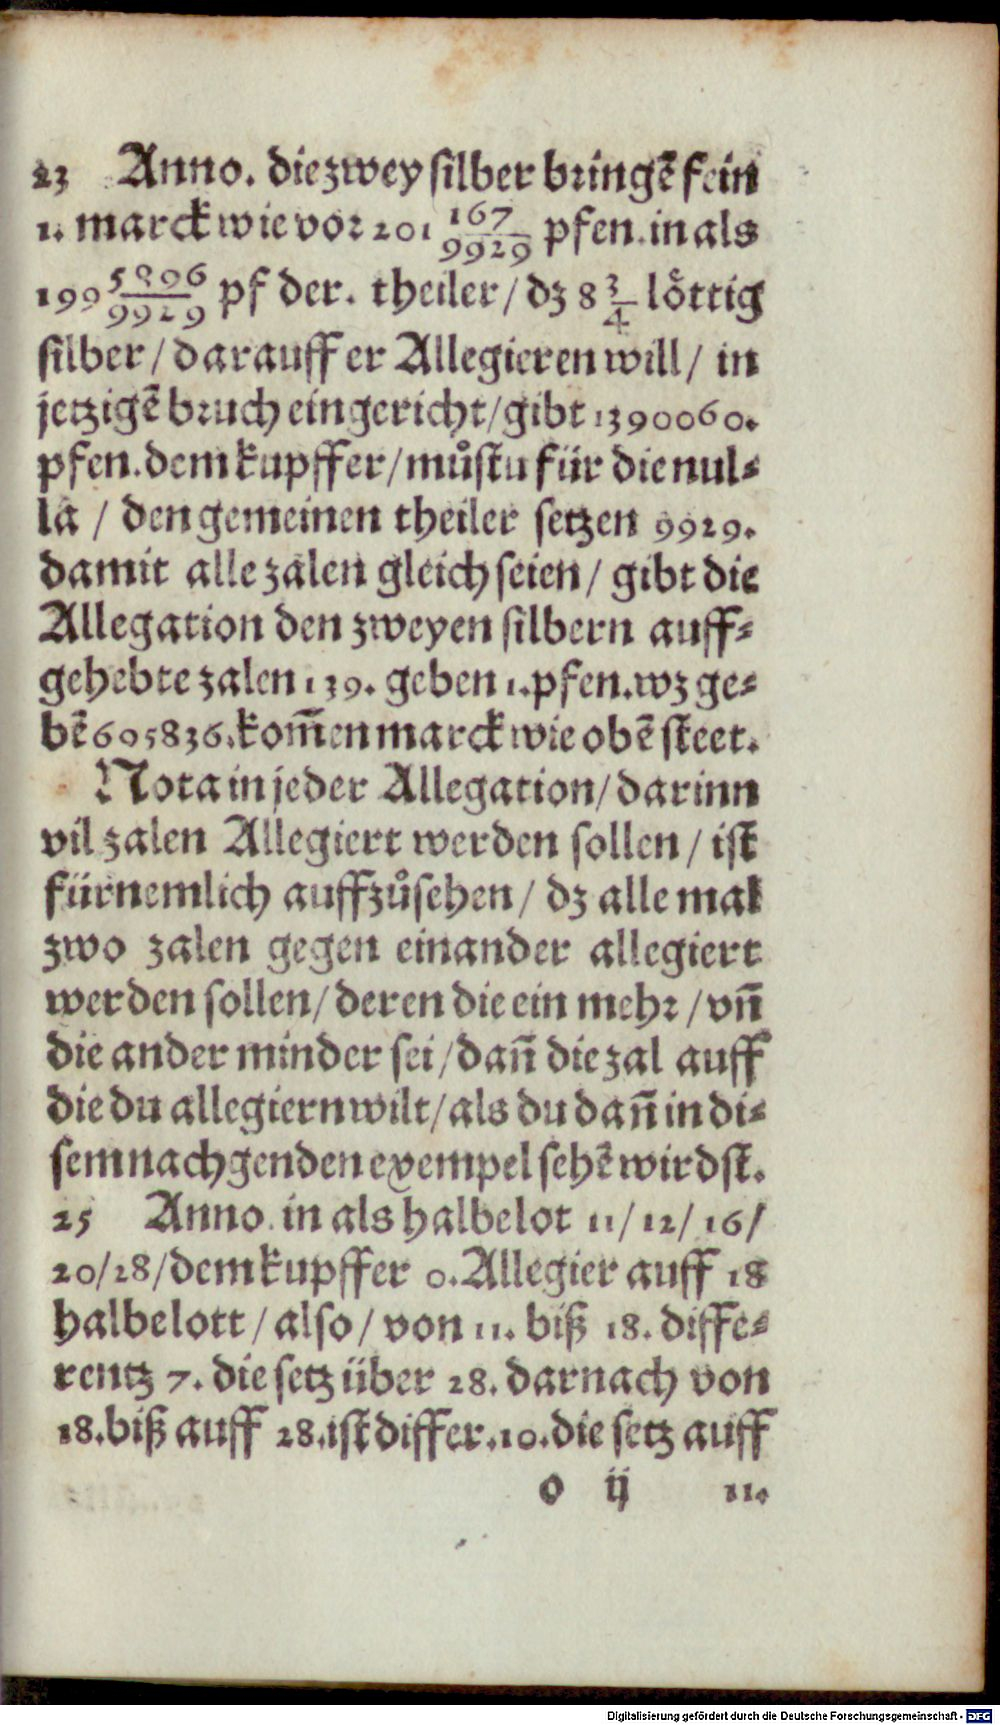 23 Anno. die zwey silber bringẽ fein
1. marck wie vor 201 167/9929 pfen. in als
199 5896/9929 pf der. theiler / dz 8 3/4 löttig
silber / darauff er Allegieren will / in
jetzigẽ bruch eingericht / gibt 1390060.
pfen. dem kupffer / můstu für die nul-
la / den gemeinen theiler setzen 9929.
damit alle zalen gleich seien / gibt die
Allegation den zweyen silbern auff-
gehebte zalen 139. geben 1. pfen. wz ge-
bẽ 605836. kom̃en marck wie obẽ steet.
Nota in jeder Allegation / darinn
vil zalen Allegiert werden sollen / ist
fürnemlich auffzůsehen / dz alle mal
zwo zalen gegen einander allegiert
werden sollen / deren die ein mehr / vñ
die ander minder sei / dañ die zal auff
die du allegiern wilt / als du dañ in di-
sem nachgenden exempel sehẽ wirdst.
25 Anno. in als halbe lot 11 / 12 / 16 /
20 / 28 / dem kupffer 0. Allegier auff 18
halbe lott / also / von 11. biß 18. diffe-
rentz 7. die setz über 28. darnach von
18. biß auff 28. ist differ. 10. die setz auff
o ij 11.
Digitalisierung gefördert durch die Deutsche Forschungsgemeinschaft - DFG